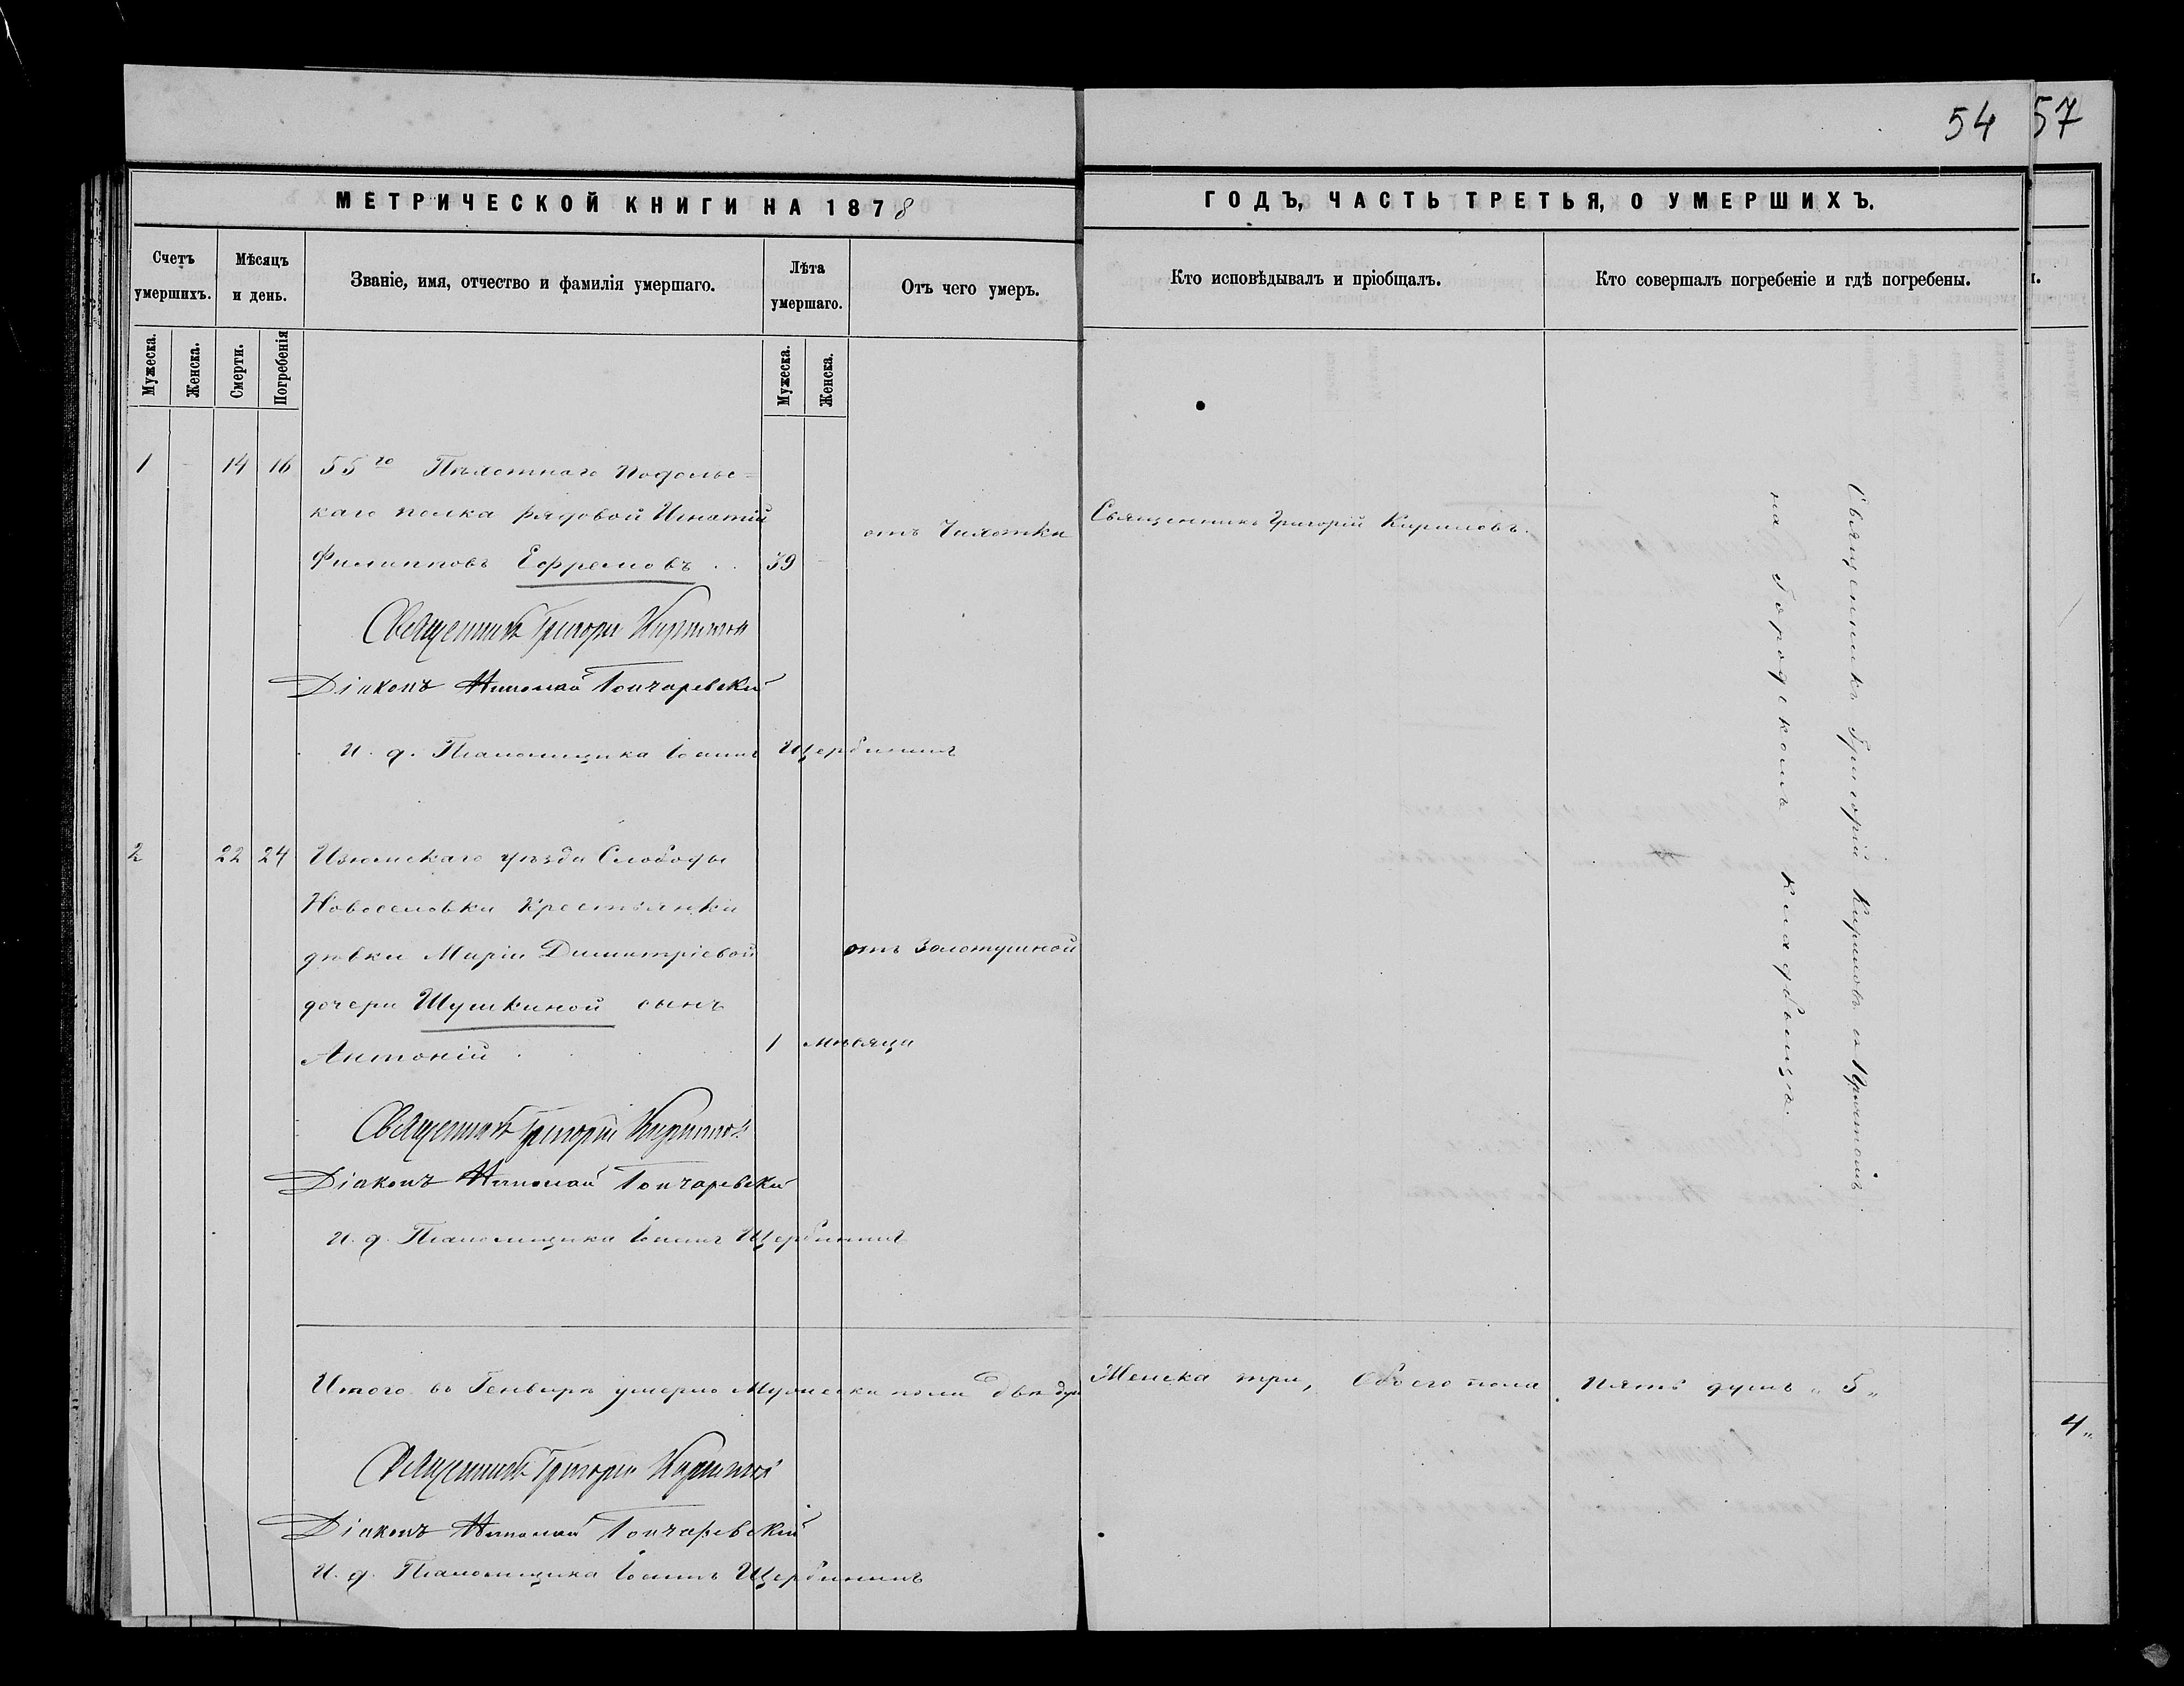 54
57
МЕТРИЧЕСКОЙ КНИГИ НА 1878
ГОДЪ, ЧАСТЬ ТРЕТЬЯ, О УМЕРШИХЪ.
Счетъ умершихъ.
Мѣсяцъ и день.
Званіе, имя, отчество и фамилія умершаго.
Лѣта умершаго.
Отъ чего умеръ.
Кто исповѣдывалъ и пріобщалъ.
Кто совершалъ погребеніе и гдѣ погребены.
Мужеска.
Женска.
Смерти.
Погребенія
Мужеска.
Женска.
1 14 16 55го Пѣхотнаго Подольс-
каго полка рядовой Игнатій
Филипповъ Ефремовъ . . 39
отъ Чахотки
Священникъ Григорій Кириловъ.
Священникъ Григорій Кириловъ
Діаконъ Николай Гончаревскій
И. д. Псаломщика Іоаннъ Щербининъ
2 22 24 Изюмскаго уѣзда Слободы
Новоселовки Крестьянки
дѣвки Маріи Димитріевой
дочери Шушкиной сынъ
Антоній . . . 1 мѣсяца
отъ Золотушной
Священникъ Григорій Кириловъ
Діаконъ Николай Гончаревскій
И. д. Псаломщика Іоаннъ Щербининъ
Священникъ Григорій Кириловъ съ Причтомъ
на Городскомъ кладбищѣ.
Итого въ Генварѣ умерло Мужеска пола двѣ душ Женска три, Обоего пола пять душъ „ 5 „
4 „
Священникъ Григорій Кириловъ
Діаконъ Николай Гончаревскій
И. д. Псаломщика Іоаннъ Щербининъ